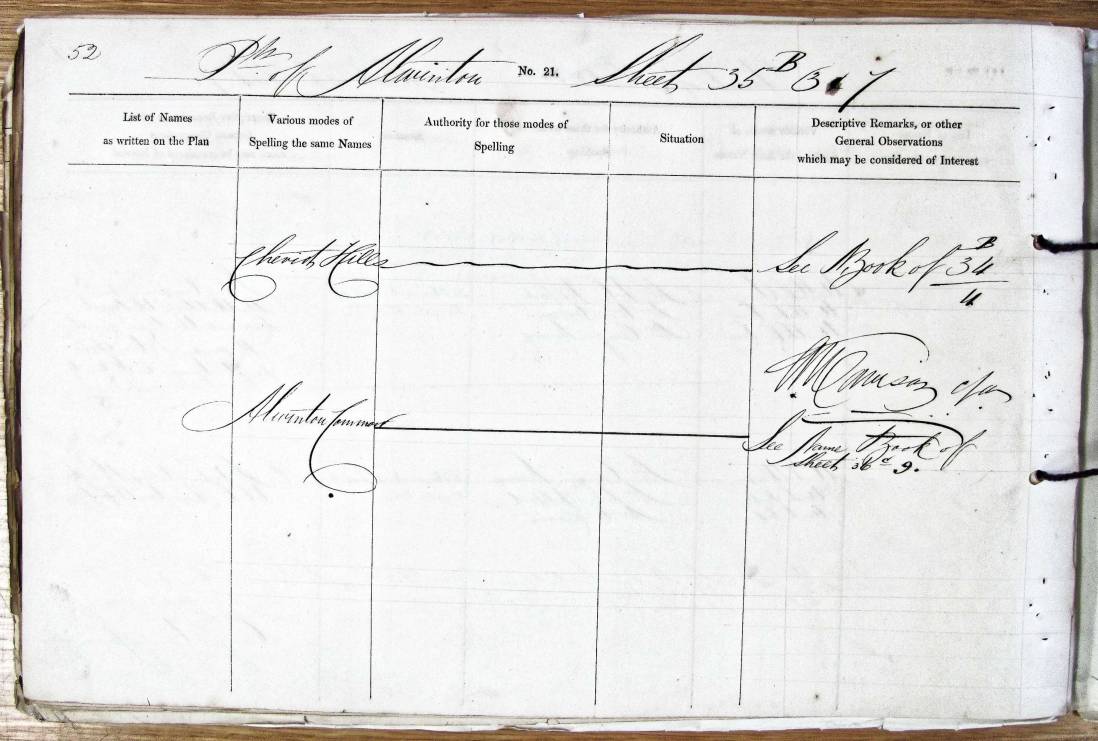 52
Ph. of Alwinton No. 21. Sheet 35 B
List of Names
as written on the Plan
Various modes of
Spelling the same Names
Authority for those modes of
Spelling
Situation
Descriptive Remarks, or other
General Observations
which may be considered of Interest
Cheviot Hills See N. Book of 34 B
4
Alwinton Common See Name Book of
Sheet 36 9.